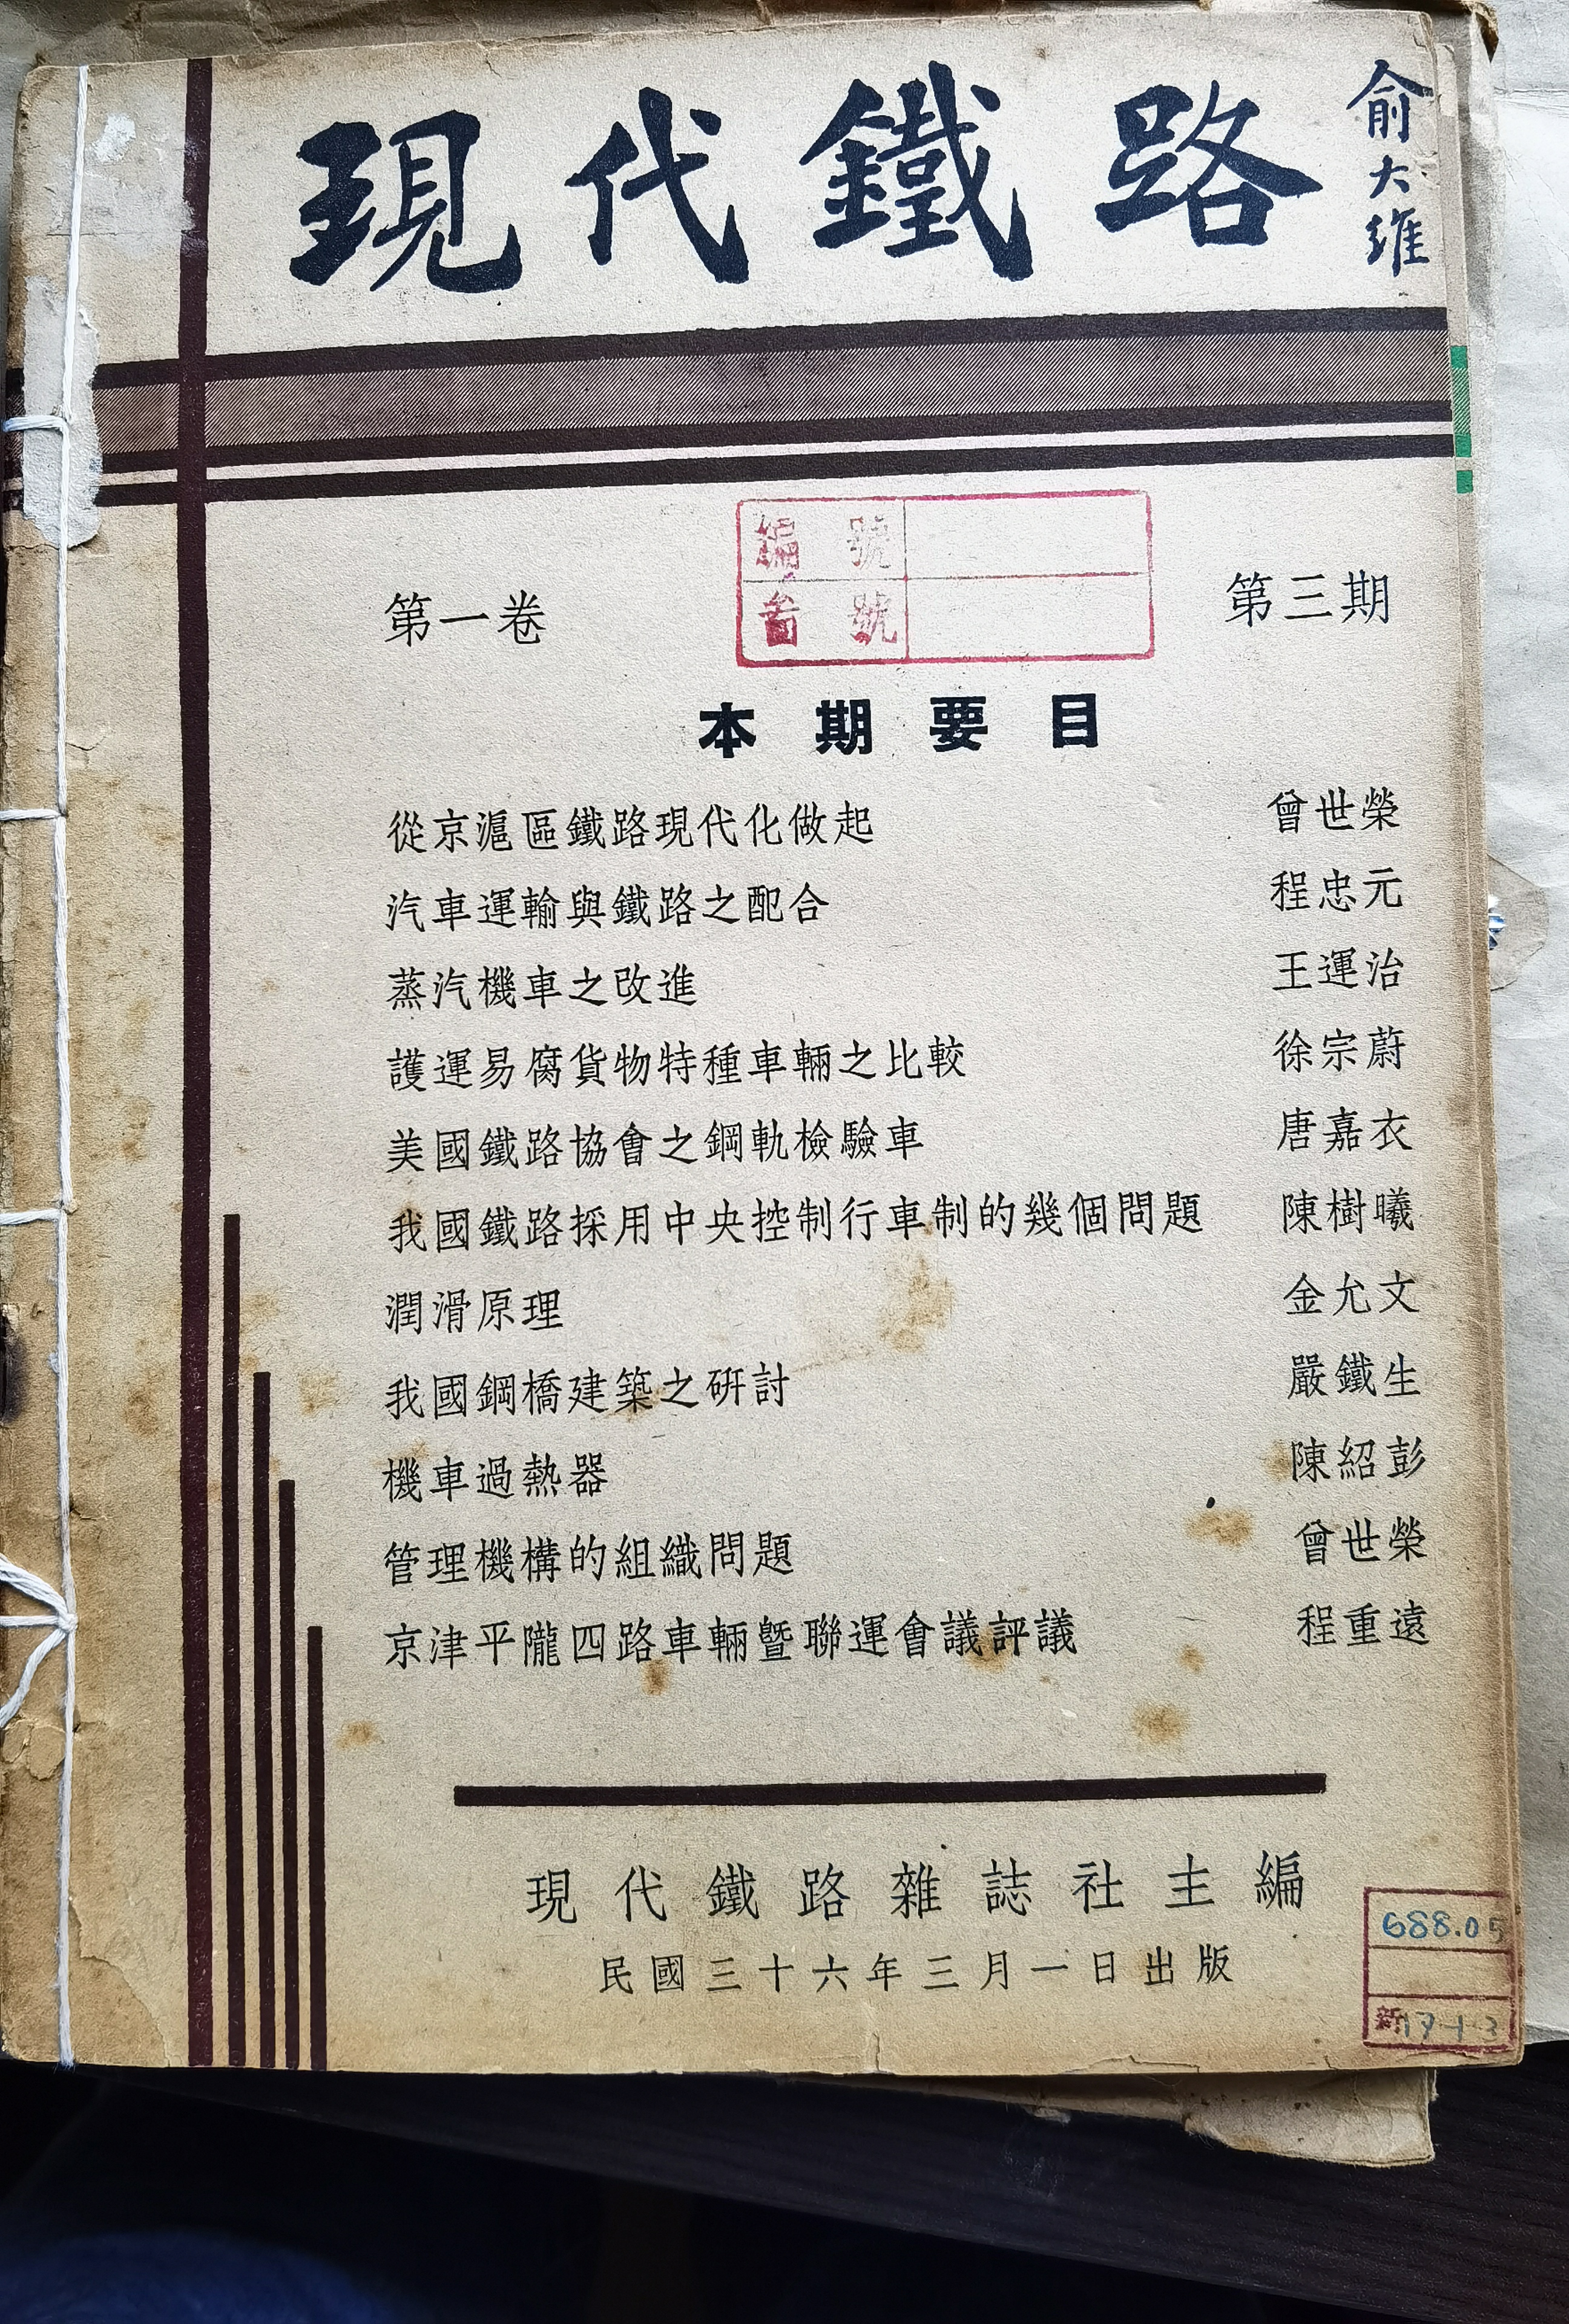 現代鐵路
俞大維
編號
第一卷
第三期
號
本期要目
從京滬區鐵路現代化做起 曾世榮
汽車運輸與鐵路之配合 程忠元
蒸汽機車之改進 王運治
護運易腐貨物特種車輛之比較 徐宗蔚
美國鐵路協會之鋼軌檢驗車 唐嘉衣
我國鐵路採用中央控制行車制的幾個問題 陳樹曦
潤滑原理 金允文
我國鋼橋建築之研討 嚴鐵生
機車過熱器 陳紹彭
管理機構的組織問題 曾世榮
京津平隴四路車輛暨聯運會議評議 程重遠
現代鐵路雜誌社主編
民國三十六年三月一日出版
688.05
新17-1-3